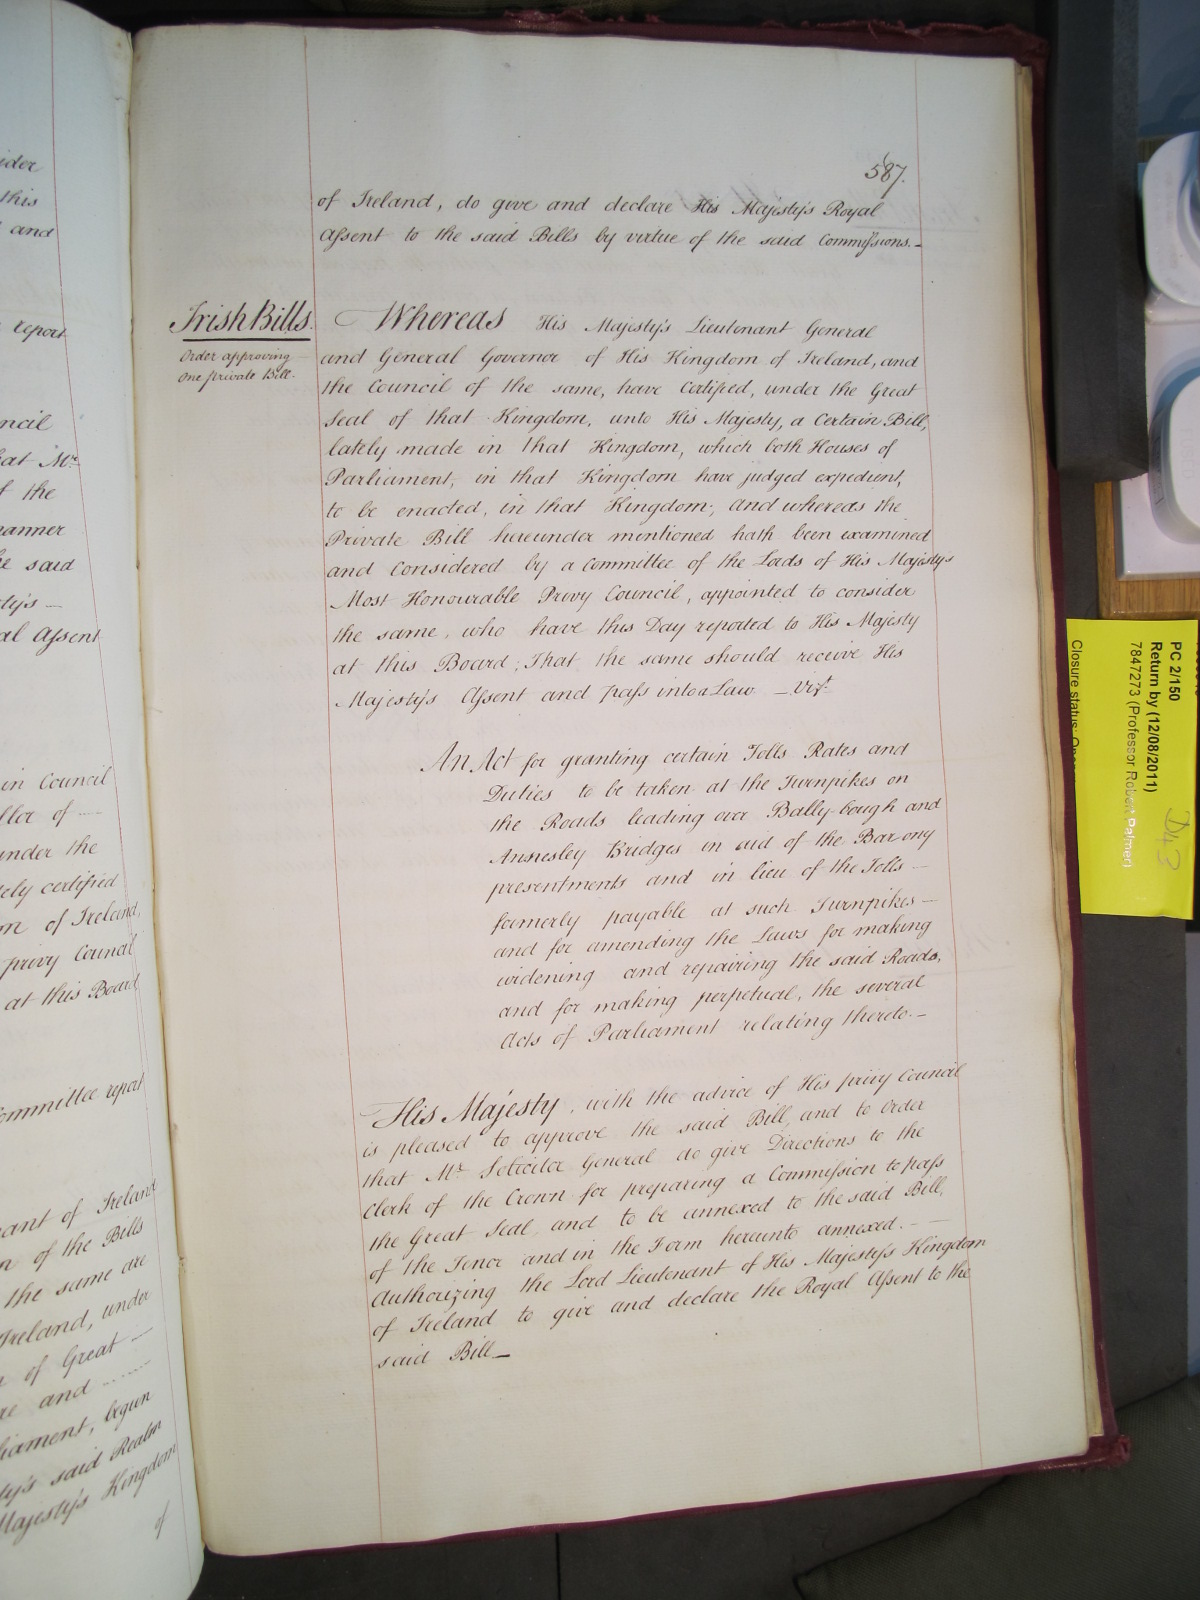 ider
this
and
report
ncil
at Mr.
f the
manner
he said
ty's —
al Assent
in Council
under the
ely certified
of Ireland,
privy Council
at this Board
ommittee report
ant of Ireland
n of the Bills
the same are
Ireland, under
of Great —
and
liament, begun
ty's said Realm
Majesty's Kingdom
of
587.
of Ireland, do give and declare His Majesty's Royal
Assent to the said Bills by virtue of the said Commissions.—
Irish Bills.
Order approving
one private Bill.
Whereas His Majesty's Lieutenant General
and General Governor of His Kingdom of Ireland, and
the Council of the same, have Certified, under the Great
Seal of that Kingdom, unto His Majesty, a Certain Bill,
lately made in that Kingdom, which both Houses of
Parliament, in that Kingdom have judged expedient,
to be enacted, in that Kingdom; and whereas the
Private Bill hereunder mentioned hath been examined
and Considered by a Committee of the Lords of His Majesty's
Most Honourable Privy Council, appointed to consider
the same, who have this Day reported to His Majesty
at this Board; That the same should receive His
Majesty's Assent and pass into a Law — Vizt.
An Act for granting certain Tolls Rates and
Duties to be taken at the Turnpikes on
the Roads leading over Bally-bough and
Annesley Bridges in aid of the Barony
presentments and in lieu of the Tolls —
formerly payable at such Turnpikes —
and for amending the Laws for making
widening and repairing the said Roads,
and for making perpetual, the several
Acts of Parliament relating thereto.—
His Majesty, with the advice of His privy Council
is pleased to approve the said Bill, and to Order
that Mr. Solicitor General do give Directions to the
Clerk of the Crown for preparing a Commission to pass
the Great Seal, and to be annexed to the said Bill,
of the Tenor and in the Form hereunto annexed. — —
Authorizing the Lord Lieutenant of His Majesty's Kingdom
of Ireland to give and declare the Royal Assent to the
said Bill —
PC 2/150
Return by (12/08/2011)
7847273 (Professor Robert Palmer)
Closure status:
D43